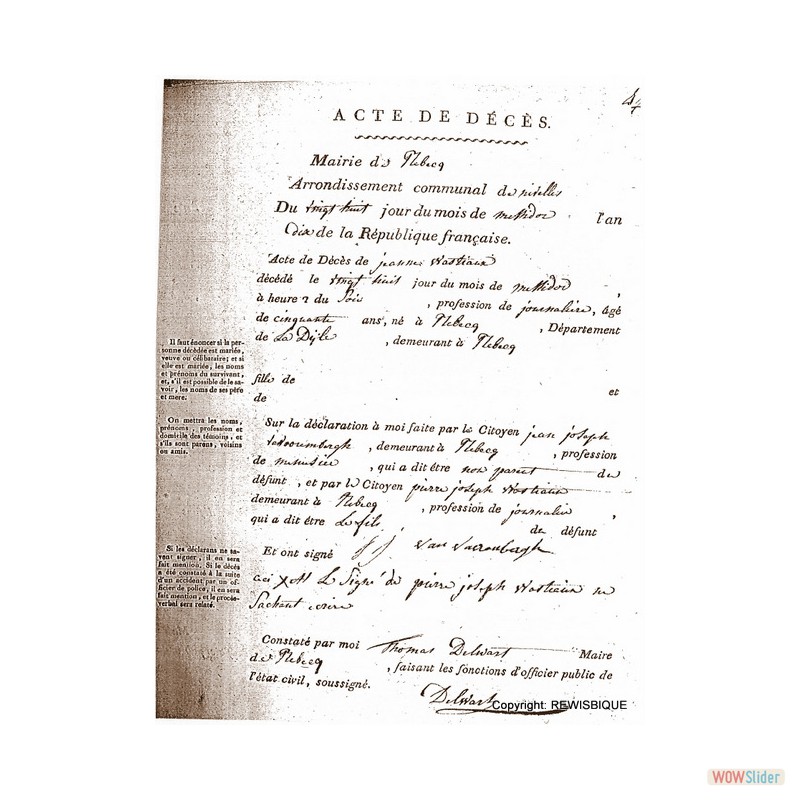 ACTE DE DÉCÈS.
Mairie de Rebecq
Arrondissement communal de nivelles
Du vingt huit jour du mois de messidor l'an
dix de la République française.
Acte de Décès de jeanne Hastiaux
décédé le vingt huit jour du mois de messidor ,
à heure 2 du Soir , profession de journaliere, âgé
de cinquante ans, né à Rebecq , Département
de La Dijle , demeurant à Rebecq
fille de et
de
Sur la déclaration à moi faite par le Citoyen jean joseph
, demeurant à Rebecq , profession
de menusier , qui a dit être non parent du
défunt , et par le Citoyen pierre joseph Hastiaux
demeurant à Rebecq , profession de journalier ,
qui a dit être Le fils du défunt
Et ont signé
Le Signe de pierre joseph Hastiaux ne
Sachant ecrire
Constaté par moi Thomas Delwart Maire
de Rebecq , faisant les fonctions d'officier public de
l'état civil, soussigné.
Delwart
Il faut énoncer si la per-
sonne décédée est mariée,
veuve ou célibataire; et si
elle est mariée, les noms
et prénoms du survivant,
et, s'il est possible de le sa-
voir, les noms de ses père
et mere.
On mettra les noms,
prénoms, profession et
domicile des témoins, et
s'ils sont parens, voisins
ou amis.
Si les déclarans ne sa-
vent signer, il en sera
fait mention. Si le décès
a été constaté à la suite
d'un accident par un of-
ficier de police, il en sera
fait mention, et le procès-
verbal sera relaté.
Copyright: REWISBIQUE
WOWSlider